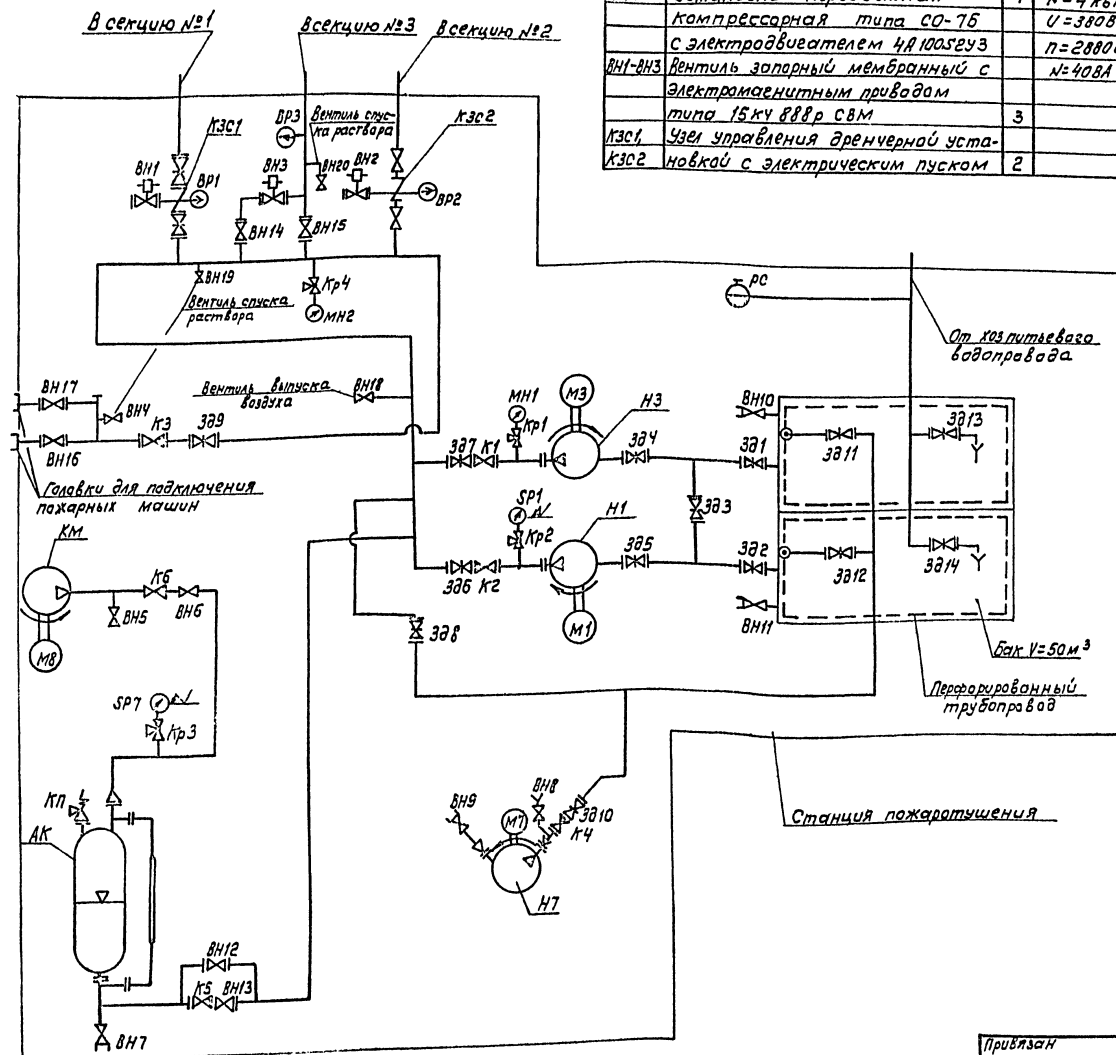 В секцию №1
В секцию №3
В секцию №2
компрессорная типа СО-7Б
U=380В
с электродвигателем 4А100S2У3
ВН1-ВН3
Вентиль запорный мембранный с
электромагнитным приводом
типа 15кч 888р СВМ
3
КЗС1,
Узел управления дренчерной уста-
КЗС2
новкой с электрическим пуском
2
КЗС1
ВР3
Вентиль спус-
ка раствора
КЗС2
ВН1
ВР1
ВН3
ВН20
ВН2
ВР2
ВН14
ВН15
ВН19
Кр4
Вентиль спуска
раствора
МН2
РС
От хозпитьевого
водопровода
ВН17
ВН4
Вентиль выпуска
воздуха
ВН18
ВН16
К3
Зд9
Головки для подключения
пожарных машин
МН1
Кр1
М3
Н3
Зд7
К1
Зд4
Зд1
ВН10
Зд11
Зд13
Зд3
SP1
Кр2
Н1
Зд6
К2
Зд5
Зд2
М1
ВН11
Зд12
Зд14
Зд8
Бак V=50м³
Перфорированный
трубопровод
КМ
К6
ВН5
ВН6
М8
SP7
Кр3
КП
АК
ВН9
М7
ВН8
Зд10
К4
Н7
Станция пожаротушения
ВН12
К5
ВН13
ВН7
Привязан